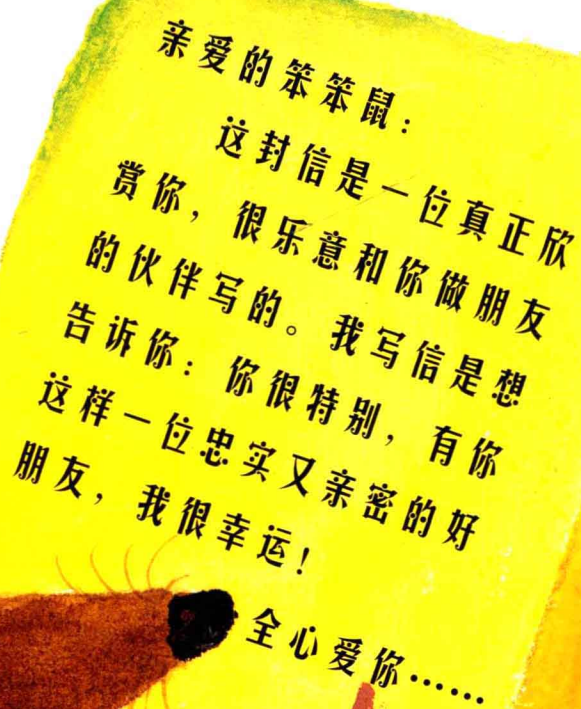 亲爱的笨笨鼠：
这封信是一位真正欣
赏你，很乐意和你做朋友
的伙伴写的。我写信是想
告诉你：你很特别，有你
这样一位忠实又亲密的好
朋友，我很幸运！
全心爱你……